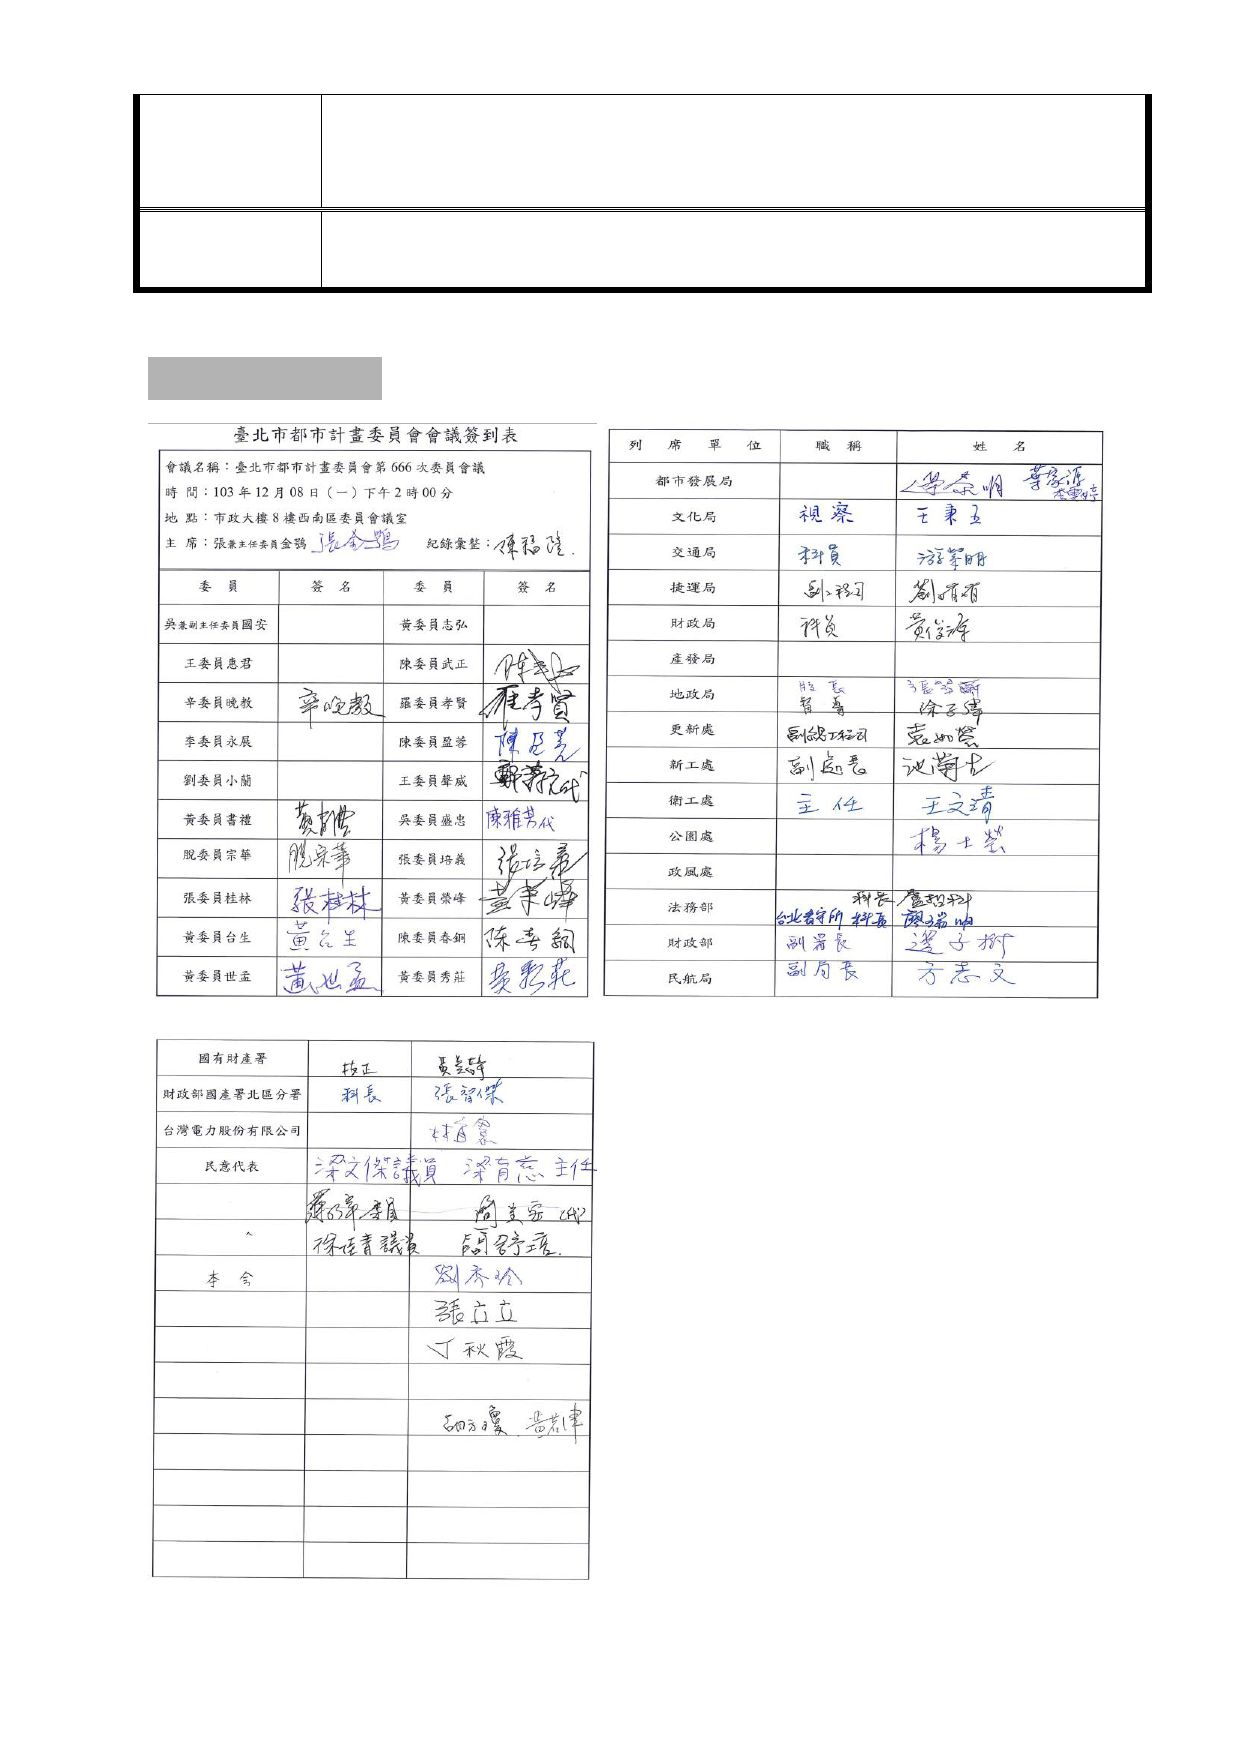 臺北市都市計畫委員會會議簽到表
會議名稱：臺北市都市計畫委員會第 666 次委員會議
時 間：103 年 12 月 08 日（一）下午 2 時 00 分
地 點：市政大樓 8 樓西南區委員會議室
主 席：張兼主任委員金鶚 張金鶚 紀錄彙整：
委 員 簽 名 委 員 簽 名
吳兼副主任委員國安 黃委員志弘
王委員惠君 陳委員武正
辛委員晚教 辛晚教 羅委員孝賢 羅孝賢
李委員永展 陳委員盈蓉
劉委員小蘭 王委員聲威
黃委員書禮 黃書禮 吳委員盛忠 陳雅芳代
脫委員宗華 脫宗華 張委員培義 張培義
張委員桂林 張桂林 黃委員榮峰 黃榮峰
黃委員台生 黃台生 陳委員春銅 陳春銅
黃委員世孟 黃世孟 黃委員秀莊 黃秀莊
列 席 單 位 職 稱 姓 名
都市發展局
文化局 視察 王秉五
交通局 科員
捷運局
財政局 科員
產發局
地政局 股長
更新處 副總工程司
新工處 副處長
衛工處 主任 王文靖
公園處
政風處
法務部 科長
台北看守所 科長
財政部 副署長 邊子樹
民航局 副局長 方志文
國有財產署 技正
財政部國產署北區分署 科長 張智傑
台灣電力股份有限公司
民意代表 梁文傑議員 主任
委員 (代)
徐佳青議員
本 會 劉秀玲
張立立
丁秋霞